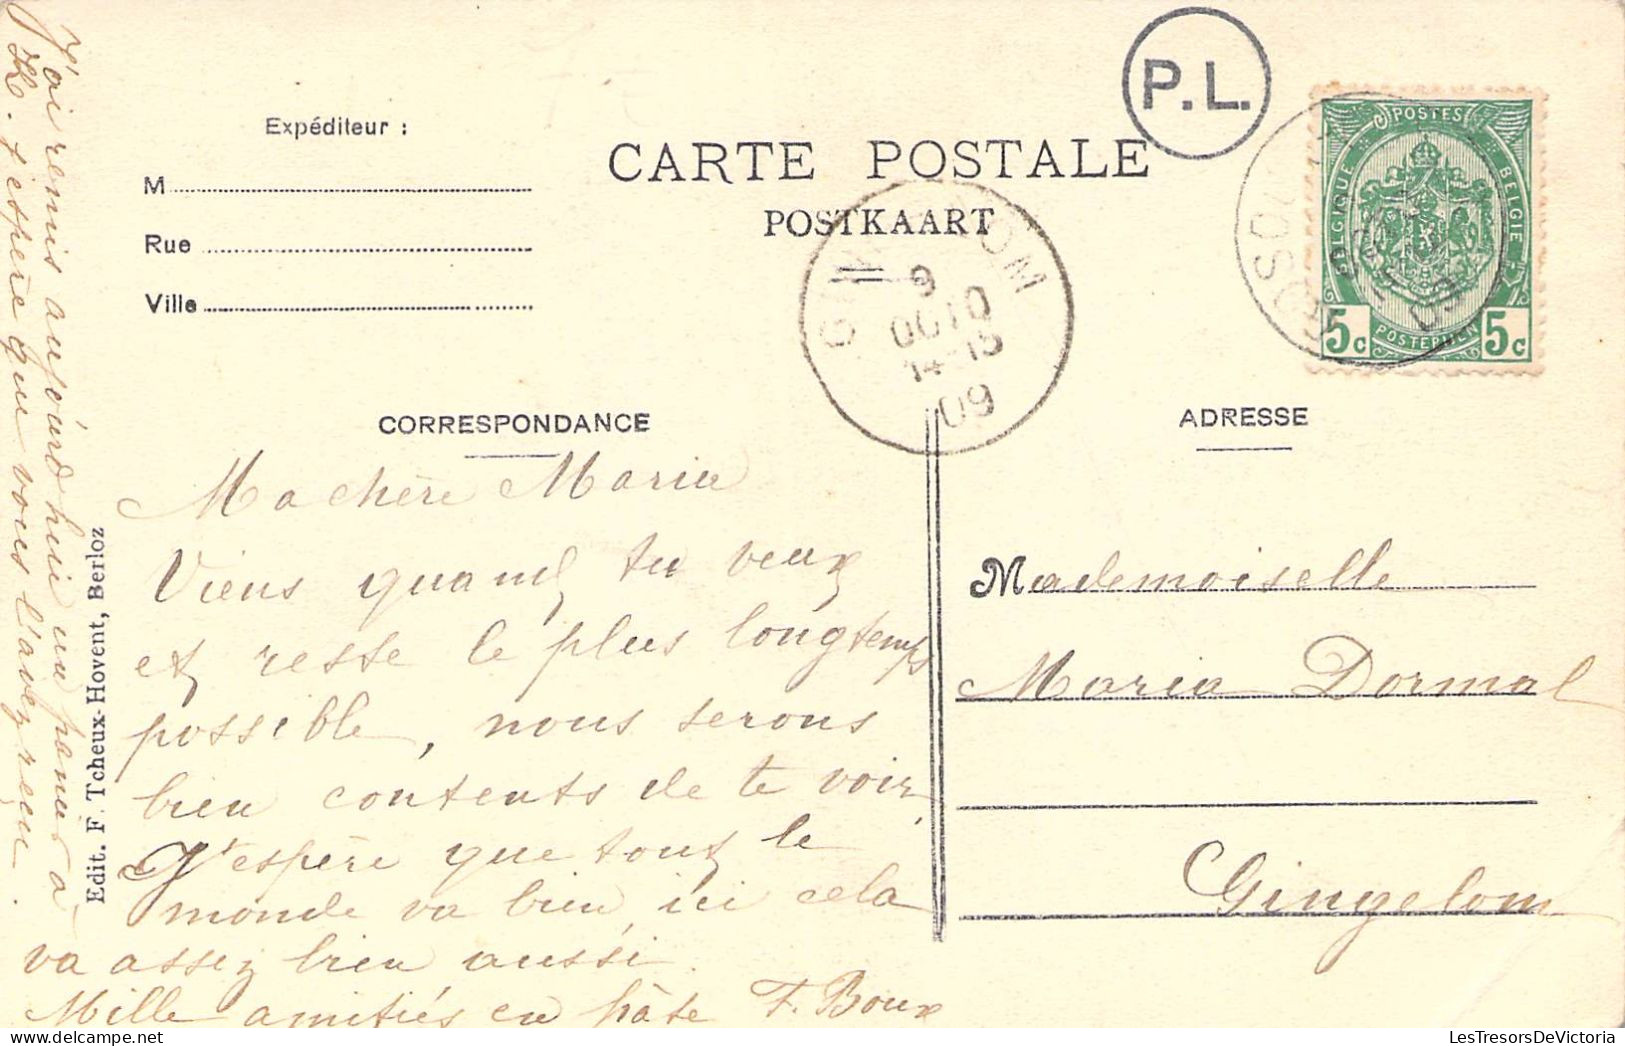 P.L.
Expéditeur :
M
Rue
Ville
CARTE POSTALE
POSTKAART
POSTES
BELGIQUE
BELGIE
5c POSTERIJEN 5c
9
OCTO
14-15
09
CORRESPONDANCE
ADRESSE
Ma chère Maria
Viens quand tu veux
et reste le plus longtemps
possible, nous serons
bien contents de te voir,
J'espère que tout le
monde va bien, ici cela
va assez bien aussi.
Mille amitiés en hâte F. Boux
Mademoiselle
Maria Dormal
Gingelom
J'ai remis aujourd'hui un panier à
M. j'espère que vous l'avez reçu.
Edit. F. Tcheux-Hovent, Berloz
LesTresorsDeVictoria